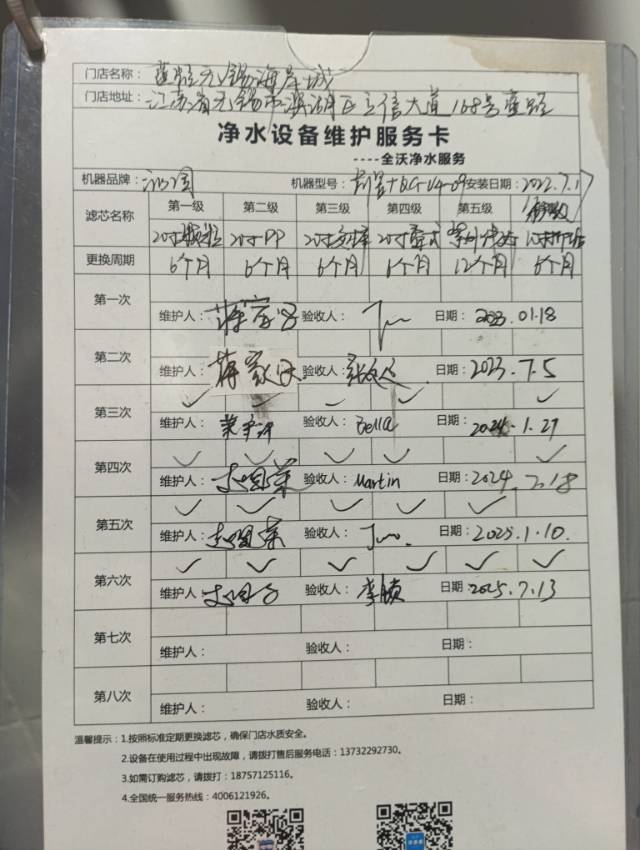 门店名称：无锡海岸城
门店地址：江苏省无锡市滨湖区立信大道168号
净水设备维护服务卡
----全沃净水服务
机器品牌： 机器型号： 安装日期：2022.7.17
滤芯名称 第一级 第二级 第三级 第四级 第五级
20寸 20寸PP 20寸 20寸
更换周期 6个月 6个月 6个月 6个月 12个月 6个月
第一次
维护人： 验收人： 日期：2023.01.18
第二次
维护人：蒋 验收人：张 日期：2023.7.5
第三次
维护人： 验收人：Bella 日期：2024.1.27
第四次
维护人： 验收人：Martin 日期：2024.7.18
第五次
维护人： 验收人： 日期：2025.1.10.
第六次
维护人： 验收人：李 日期：2025.7.13
第七次
维护人： 验收人： 日期：
第八次
维护人： 验收人： 日期：
温馨提示：1.按照标准定期更换滤芯，确保门店水质安全。
2.设备在使用过程中出现故障，请拨打售后服务电话：13732292730。
3.如需订购滤芯，请拨打：18757125116。
4.全国统一服务热线：4006121926。